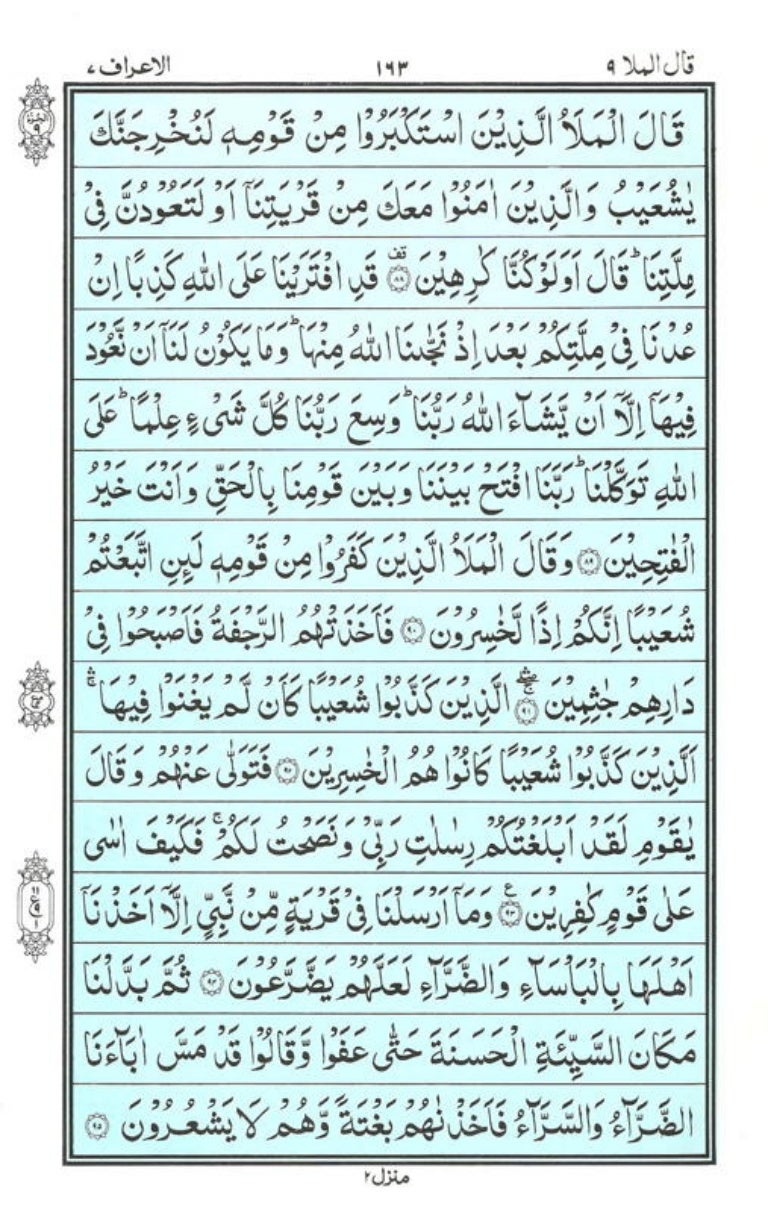 قال الملا ٩
١٦٣
الاعراف ٧
قَالَ الْمَلَاُ الَّذِيْنَ اسْتَكْبَرُوْا مِنْ قَوْمِهٖ لَنُخْرِجَنَّكَ
يٰشُعَيْبُ وَالَّذِيْنَ اٰمَنُوْا مَعَكَ مِنْ قَرْيَتِنَآ اَوْ لَتَعُوْدُنَّ فِيْ
مِلَّتِنَا ؕ قَالَ اَوَلَوْ كُنَّا كٰرِهِيْنَ ۟ قف ۸۸ قَدِ افْتَرَيْنَا عَلَى اللّٰهِ كَذِبًا اِنْ
عُدْنَا فِيْ مِلَّتِكُمْ بَعْدَ اِذْ نَجّٰىنَا اللّٰهُ مِنْهَا ؕ وَمَا يَكُوْنُ لَنَآ اَنْ نَّعُوْدَ
فِيْهَآ اِلَّآ اَنْ يَّشَآءَ اللّٰهُ رَبُّنَا ؕ وَسِعَ رَبُّنَا كُلَّ شَيْءٍ عِلْمًا ؕ عَلَى
اللّٰهِ تَوَكَّلْنَا ؕ رَبَّنَا افْتَحْ بَيْنَنَا وَبَيْنَ قَوْمِنَا بِالْحَقِّ وَاَنْتَ خَيْرُ
الْفٰتِحِيْنَ ۸۹ وَقَالَ الْمَلَاُ الَّذِيْنَ كَفَرُوْا مِنْ قَوْمِهٖ لَئِنِ اتَّبَعْتُمْ
شُعَيْبًا اِنَّكُمْ اِذًا لَّخٰسِرُوْنَ ۹۰ فَاَخَذَتْهُمُ الرَّجْفَةُ فَاَصْبَحُوْا فِيْ
دَارِهِمْ جٰثِمِيْنَ ۹۱ الَّذِيْنَ كَذَّبُوْا شُعَيْبًا كَاَنْ لَّمْ يَغْنَوْا فِيْهَا ۛۚ
اَلَّذِيْنَ كَذَّبُوْا شُعَيْبًا كَانُوْا هُمُ الْخٰسِرِيْنَ ۹۲ فَتَوَلّٰى عَنْهُمْ وَقَالَ
يٰقَوْمِ لَقَدْ اَبْلَغْتُكُمْ رِسٰلٰتِ رَبِّيْ وَنَصَحْتُ لَكُمْ ۚ فَكَيْفَ اٰسٰى
عَلٰى قَوْمٍ كٰفِرِيْنَ ۹۳ ع وَمَآ اَرْسَلْنَا فِيْ قَرْيَةٍ مِّنْ نَّبِيٍّ اِلَّآ اَخَذْنَآ
اَهْلَهَا بِالْبَاْسَآءِ وَالضَّرَّآءِ لَعَلَّهُمْ يَضَّرَّعُوْنَ ۹۴ ثُمَّ بَدَّلْنَا
مَكَانَ السَّيِّئَةِ الْحَسَنَةَ حَتّٰى عَفَوْا وَّقَالُوْا قَدْ مَسَّ اٰبَآءَنَا
الضَّرَّآءُ وَالسَّرَّآءُ فَاَخَذْنٰهُمْ بَغْتَةً وَّهُمْ لَا يَشْعُرُوْنَ ۹۵
منزل ۲